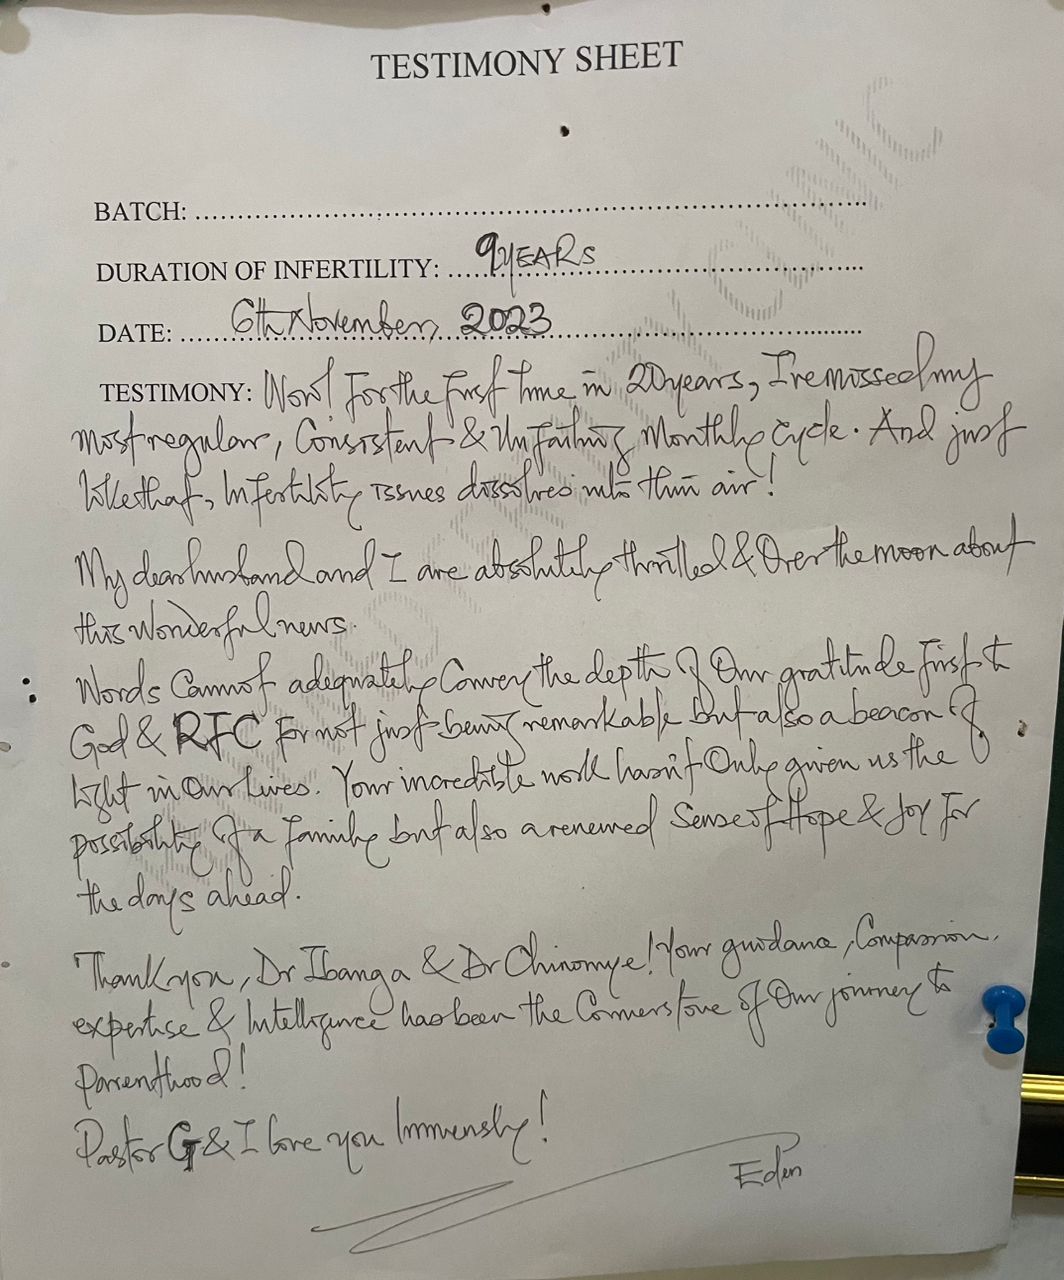 TESTIMONY SHEET
BATCH: ..........
DURATION OF INFERTILITY: 9YEARS
DATE: 6th November, 2023
TESTIMONY: Wow! For the first time in 20years, I've missed my
most regular, Consistent & Unfailing Monthly cycle. And just
like that, Infertility issues dissolves into thin air!
My dear husband and I are absolutely thrilled & Over the moon about
this Wonderful news.
Words Cannot adequately Convey the depth of Our gratitude first to
God & RFC for not just being remarkable but also a beacon of
light in Our Lives. Your incredible work hasn't Only given us the
possibility of a family but also a renewed Sense of Hope & Joy for
the days ahead.
Thank you, Dr Ibanga & Dr Chinomye! Your guidance, Compassion,
expertise & Intelligence has been the Cornerstone of Our journey to
Parenthood!
Pastor G & I love you Immensely!
Eden